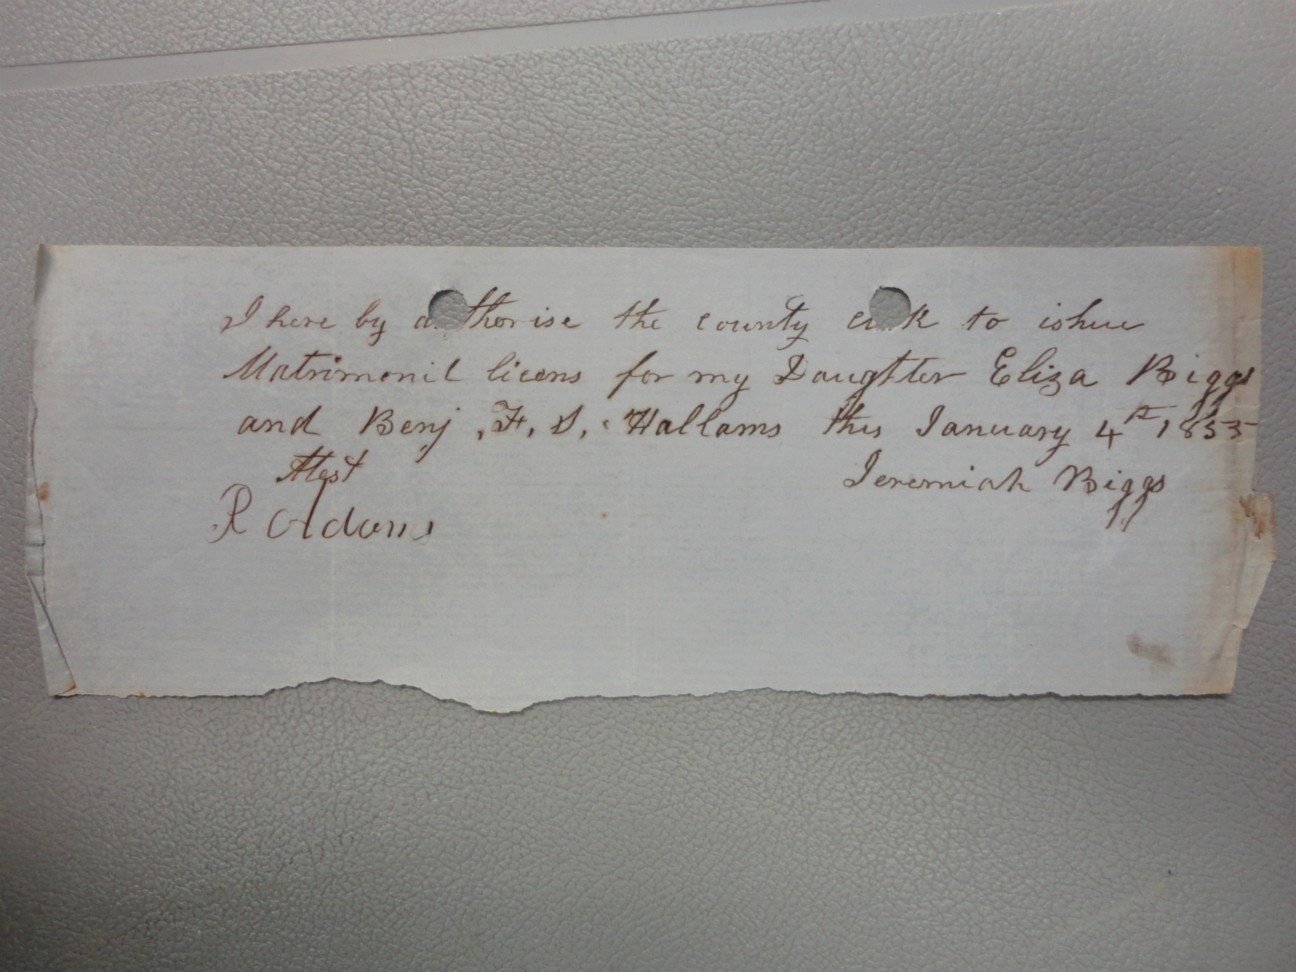 I here by a thorise the county c k to ishue
Matrimonil licens for my Daughter Eliza Biggs
and Benj, F, S, Hallams this January 4th 1855
Attest Jeremiah Biggs
R Adams